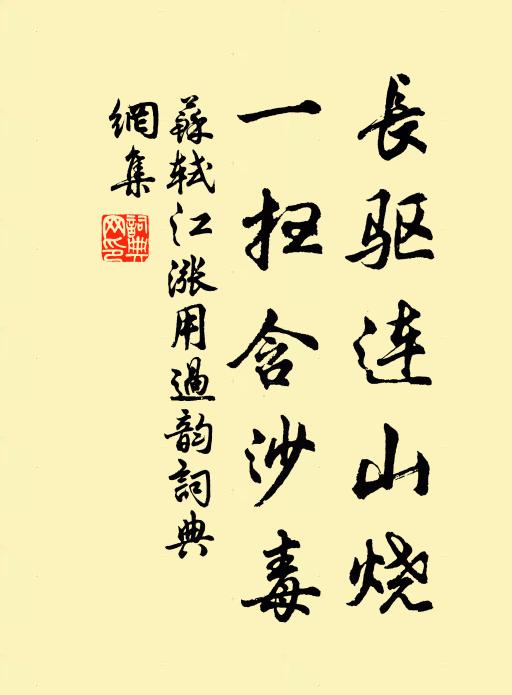 長驱连山烧
一扫含沙毒
蘇轼江漲用過韵詞典
網集
詞典
网印